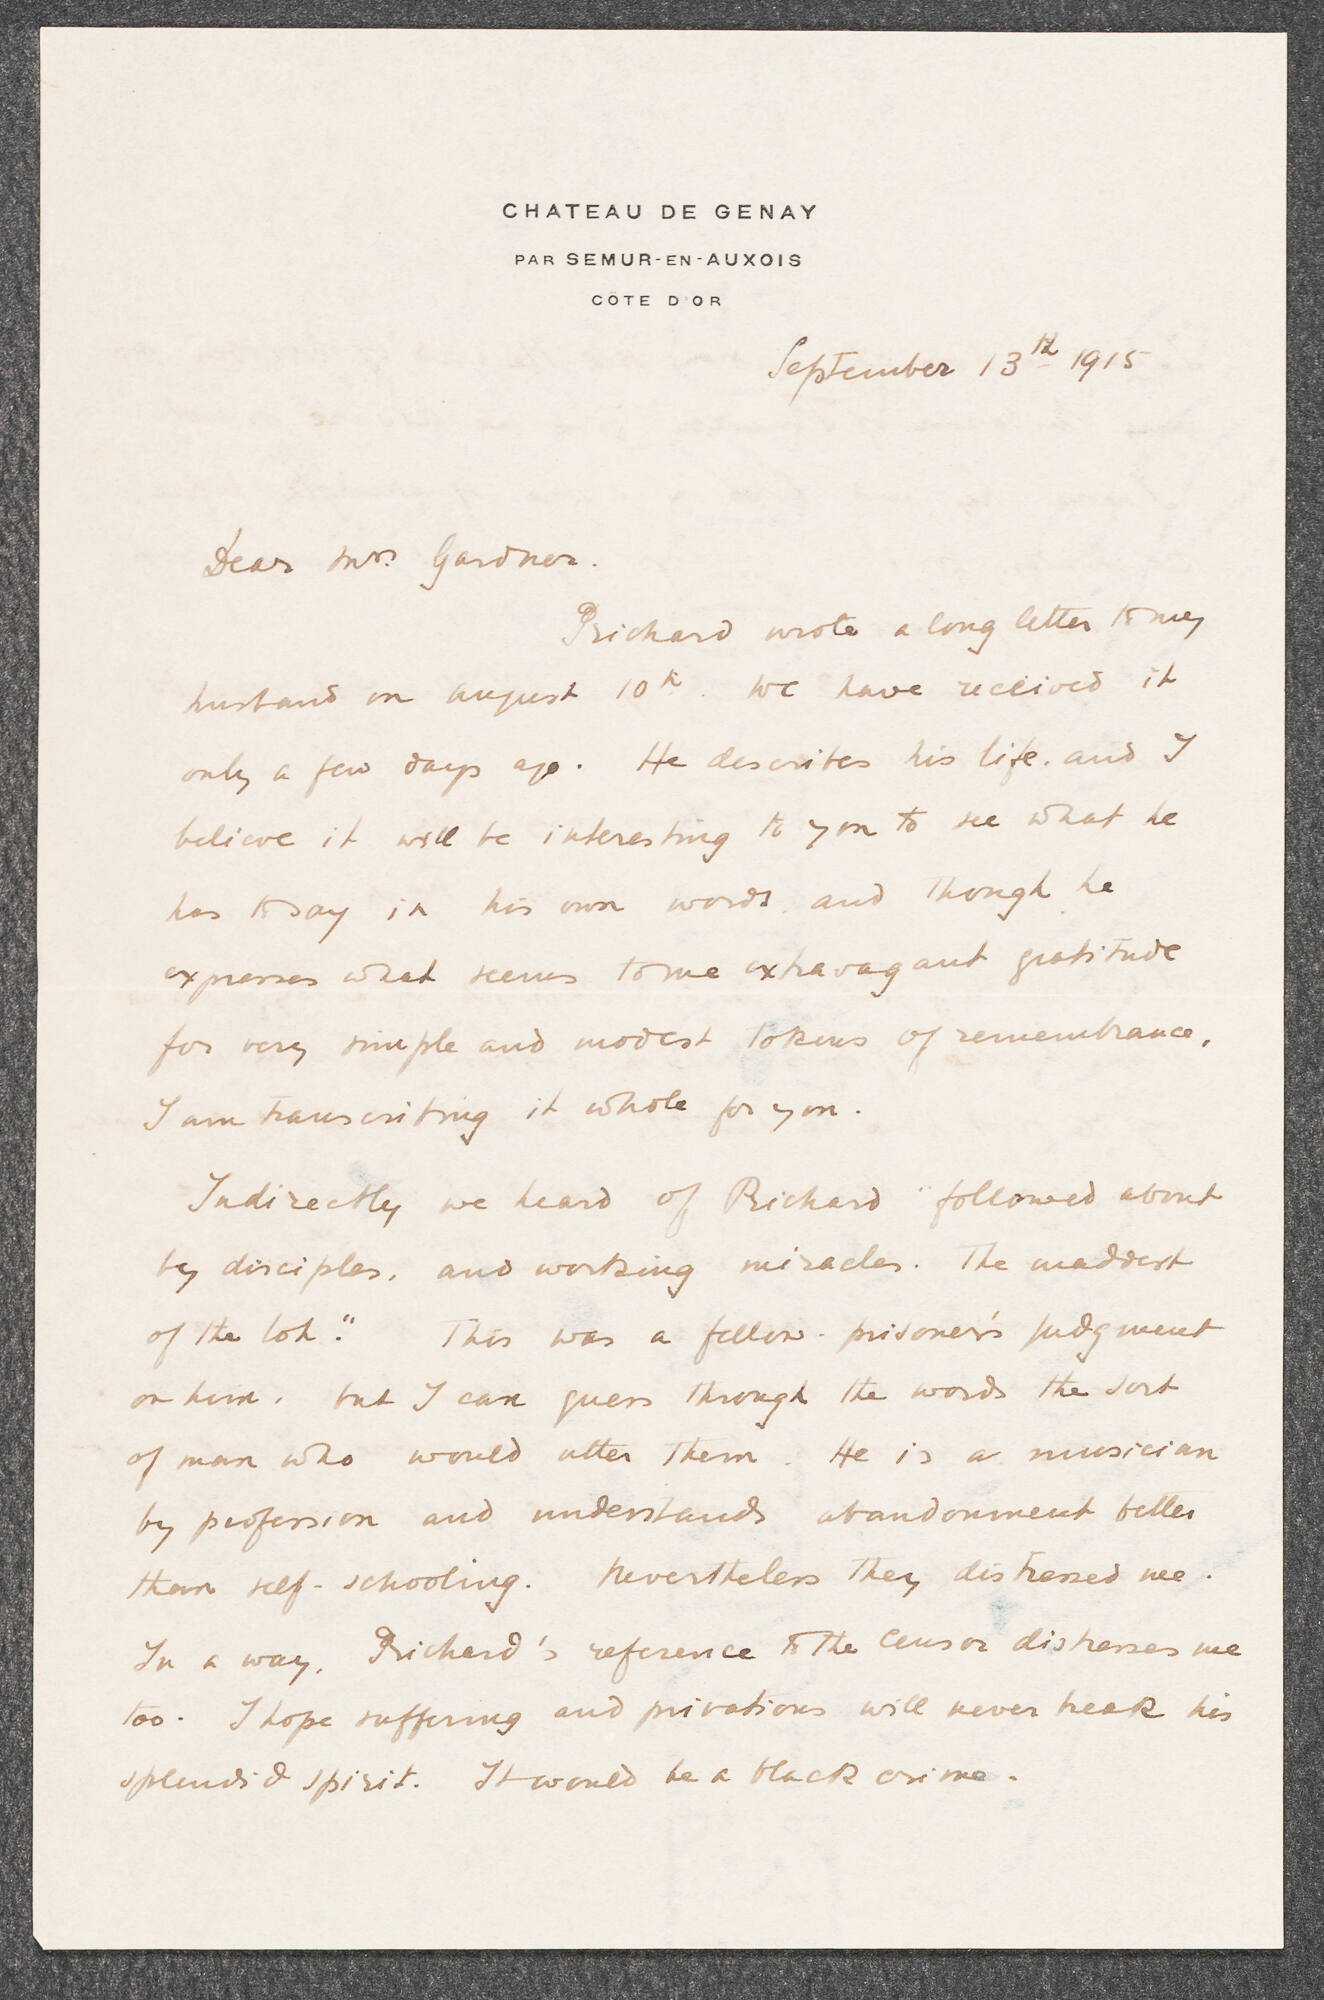 CHATEAU DE GENAY
PAR SEMUR-EN-AUXOIS
CÔTE D'OR
September 13th 1915
Dear Mrs. Gardner.
Prichard wrote a long letter to my
husband on August 10th. We have received it
only a few days ago. He describes his life, and I
believe it will be interesting to you to see what he
has to say in his own words, and though he
expresses what seems to me extravagant gratitude
for very simple and modest tokens of remembrance,
I am transcribing it whole for you.
Indirectly we heard of Prichard "followed about
by disciples, and working miracles. The maddest
of the lot." This was a fellow-prisoner's judgment
on him, but I can guess through the words the sort
of man who would utter them. He is a musician
by profession and understands abandonment better
than self-schooling. Nevertheless they distressed me.
In a way, Prichard's reference to the Censor distresses me
too. I hope suffering and privations will never break his
splendid spirit. It would be a black crime.